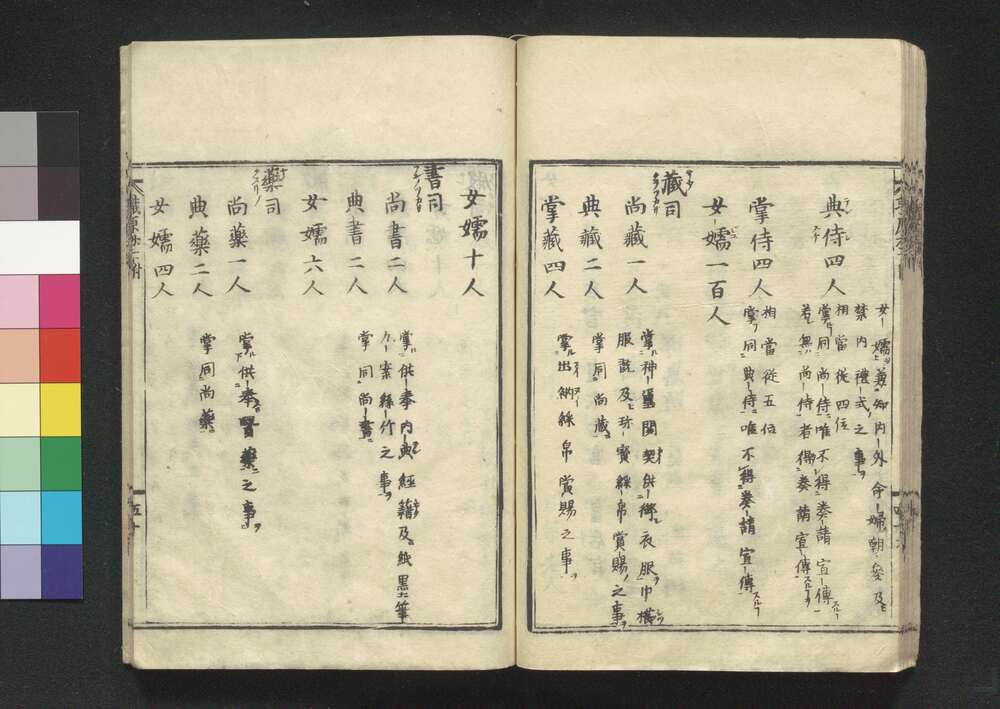 女嬬兼知内外命婦朝參及
禁内禮式之事
典侍四人
相當從四位
掌同尚侍唯不得奏請宣傳
若無尚侍者得奏請宣傳
掌侍四人
相當從五位
掌同典侍唯不得奏請宣傳
女嬬一百人
藏司
尚藏一人
掌神璽關契供御衣服巾櫛
服翫及珍寶綵帛賞賜之事
典藏二人
掌同尚藏
掌藏四人
掌出納綵帛賞賜之事
女嬬十人
書司
尚書二人
掌供奉内典經籍及紙墨筆
几案絲竹之事
典書二人
掌同尚書
女嬬六人
藥司
尚藥一人
掌供奉醫藥之事
典藥二人
掌同尚藥
女嬬四人